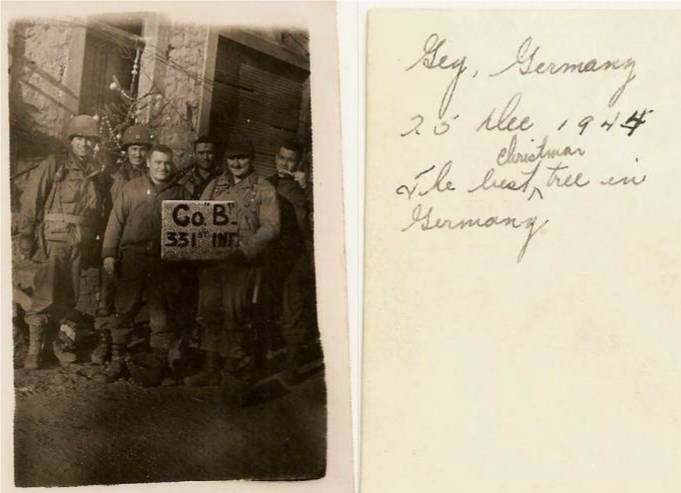 Co. "B".
331st INF.
Gey, Germany
25 Dec 1944
christmas
The best ^ tree in
Germany.